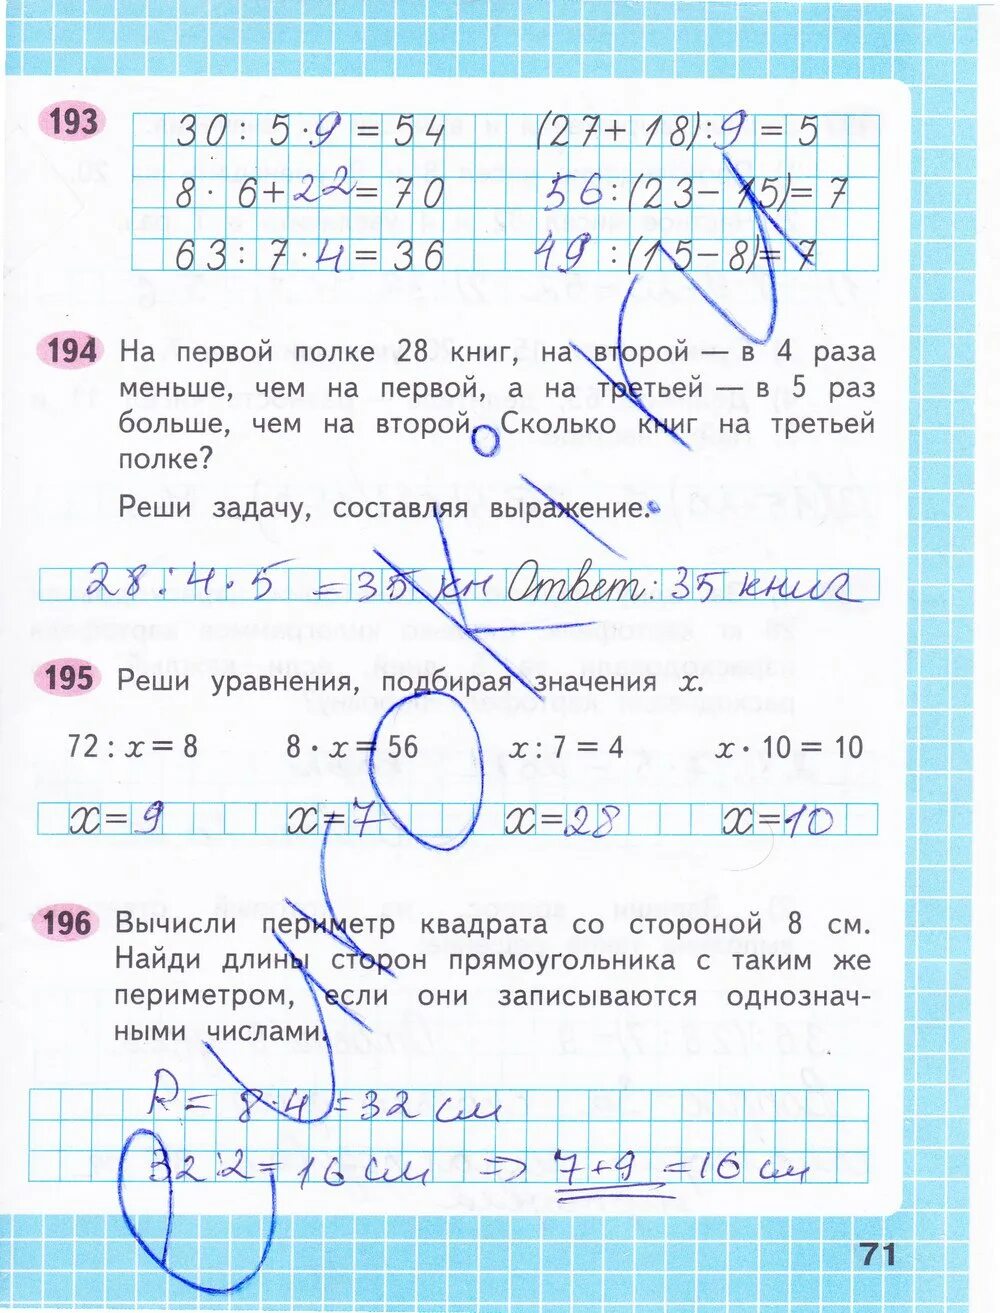 193
30 : 5 · 9 = 54 (27 + 18) : 9 = 5
8 · 6 + 22 = 70 56 : (23 – 15) = 7
63 : 7 · 4 = 36 49 : (15 – 8) = 7
194 На первой полке 28 книг, на второй — в 4 раза
меньше, чем на первой, а на третьей — в 5 раз
больше, чем на второй. Сколько книг на третьей
полке?
Реши задачу, составляя выражение.
28 : 4 · 5 = 35 кн Ответ: 35 книг
195 Реши уравнения, подбирая значения x.
72 : x = 8 8 · x = 56 x : 7 = 4 x · 10 = 10
x = 9 x = 7 x = 28 x = 10
196 Вычисли периметр квадрата со стороной 8 см.
Найди длины сторон прямоугольника с таким же
периметром, если они записываются однознач-
ными числами.
P = 8 · 4 = 32 см
32 : 2 = 16 см ⇒ 7 + 9 = 16 см
71